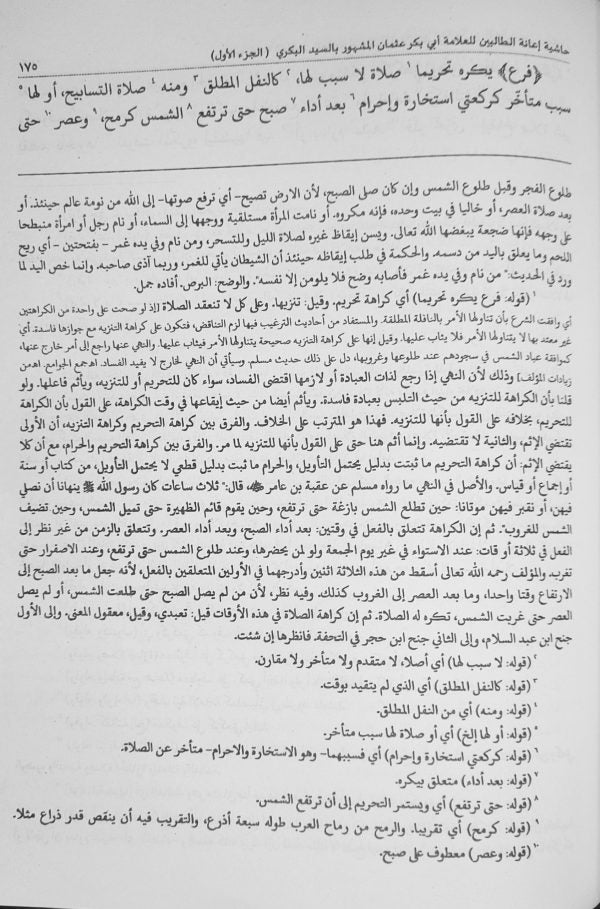 حاشية إعانة الطالبين للعلامة أبي بكر عثمان المشهور بالسيد البكري (الجزء الأول)
١٧٥
﴿فرع﴾ يكره تحريما ١ صلاة لا سبب لها، ٢ كالنفل المطلق ٣ ومنه ٤ صلاة التسابيح، أو لها ٥
سبب متأخّر كركعتي استخارة وإحرام ٦ بعد أداء ٧ صبح حتى ترتفع ٨ الشمس كرمح، ٩ وعصر ١٠ حتى
طلوع الفجر وقبل طلوع الشمس وإن كان صلى الصبح، لأن الارض تصيح- أي ترفع صوتها- إلى الله من نومة عالم حينئذ. أو
بعد صلاة العصر، أو خاليا في بيت وحده، فإنه مكروه. أو نامت المرأة مستلقية ووجهها إلى السماء، أو نام رجل أو امرأة منبطحا
على وجهه فإنها ضجعة يبغضها الله تعالى. ويسن إيقاظ غيره لصلاة الليل وللتسحر، ومن نام وفي يده غمر - بفتحتين - أي ريح
اللحم وما يعلق باليد من دسمه. والحكمة في طلب إيقاظه حينئذ أن الشيطان يأتي للغمر، وربما آذى صاحبه. وإنما خص اليد لما
ورد في الحديث: "من نام وفي يده غمر فأصابه وضح فلا يلومن إلا نفسه". والوضح: البرص. أفاده جمل.
١ (قوله: فرع يكره تحريما) أي كراهة تحريم. وقيل: تنزيها. وعلى كل لا تنعقد الصلاة [إذ لو صحت على واحدة من الكراهتين
أي وافقت الشرع بأن تتناولها الأمر بالنافلة المطلقة. والمستفاد من أحاديث الترغيب فيها لزم التناقض، فتكون على كراهة التنزيه مع جوازها فاسدة. أي
غير معتد بها لا يتناولها الأمر فلا يثاب عليها. وقيل إنها على كراهة التنزيه صحيحة يتناولها الأمر فيثاب عليها. والنهي عنها راجع إلى أمر خارج عنها،
كموافقة عباد الشمس في سجودهم عند طلوعها وغروبها، دل على ذلك حديث مسلم. وسيأتي أن النهي لخارج لا يفيد الفساد. اهجمع الجوامع. اهمن
زيادات المؤلف] وذلك لأن النهي إذا رجع لذات العبادة أو لازمها اقتضى الفساد، سواء كان للتحريم أو للتنزيه، ويأثم فاعلها. ولو
قلنا بأن الكراهة للتنزيه من حيث التلبس بعبادة فاسدة. ويأثم أيضا من حيث إيقاعها في وقت الكراهة، على القول بأن الكراهة
للتحريم، بخلافه على القول بأنها للتنزيه. فهذا هو المترتب على الخلاف. والفرق بين كراهة التحريم وكراهة التنزيه، أن الأولى
تقتضي الإثم، والثانية لا تقتضيه. وإنما أثم هنا حتى على القول بأنها للتنزيه لما مر. والفرق بين كراهة التحريم والحرام، مع أن كلا
يقتضي الإثم: أن كراهة التحريم ما ثبتت بدليل يحتمل التأويل، والحرام ما ثبت بدليل قطعي لا يحتمل التأويل، من كتاب أو سنة
أو إجماع أو قياس. والأصل في النهي ما رواه مسلم عن عقبة بن عامر ﷺ، قال: "ثلاث ساعات كان رسول الله ﷺ ينهانا أن نصلي
فيهن، أو نقبر فيهن موتانا: حين تطلع الشمس بازغة حتى ترتفع، وحين يقوم قائم الظهيرة حتى تميل الشمس، وحين تضيف
الشمس للغروب". ثم إن الكراهة تتعلق بالفعل في وقتين: بعد أداء الصبح، وبعد أداء العصر. وتتعلق بالزمن من غير نظر إلى
الفعل في ثلاثة أوقات: عند الاستواء في غير يوم الجمعة ولو لمن يحضرها، وعند طلوع الشمس حتى ترتفع، وعند الاصفرار حتى
تغرب. والمؤلف رحمه الله تعالى أسقط من هذه الثلاثة اثنين وأدرجهما في الأولين المتعلقين بالفعل، لأنه جعل ما بعد الصبح إلى
الارتفاع وقتا واحدا، وما بعد العصر إلى الغروب كذلك. وفيه نظر، لأن من لم يصل الصبح حتى طلعت الشمس، أو لم يصل
العصر حتى غربت الشمس، تكره له الصلاة. ثم إن كراهة الصلاة في هذه الأوقات قيل: تعبدي، وقيل، معقول المعنى. وإلى الأول
جنح ابن عبد السلام، وإلى الثاني جنح ابن حجر في التحفة. فانظرها إن شئت.
٢ (قوله: لا سبب لها) أي أصلا، لا متقدم ولا متأخر ولا مقارن.
٣ (قوله: كالنفل المطلق) أي الذي لم يتقيد بوقت.
٤ (قوله: ومنه) أي من النفل المطلق.
٥ (قوله: أو لها إلخ) أي أو صلاة لها سبب متأخر.
٦ (قوله: كركعتي استخارة وإحرام) أي فسببهما- وهو الاستخارة والاحرام- متأخر عن الصلاة.
٧ (قوله: بعد أداء) متعلق بيكره.
٨ (قوله: حتى ترتفع) أي ويستمر التحريم إلى أن ترتفع الشمس.
٩ (قوله: كرمح) أي تقريبا. والرمح من رماح العرب طوله سبعة أذرع، والتقريب فيه أن ينقص قدر ذراع مثلا.
١٠ (قوله: وعصر) معطوف على صبح.